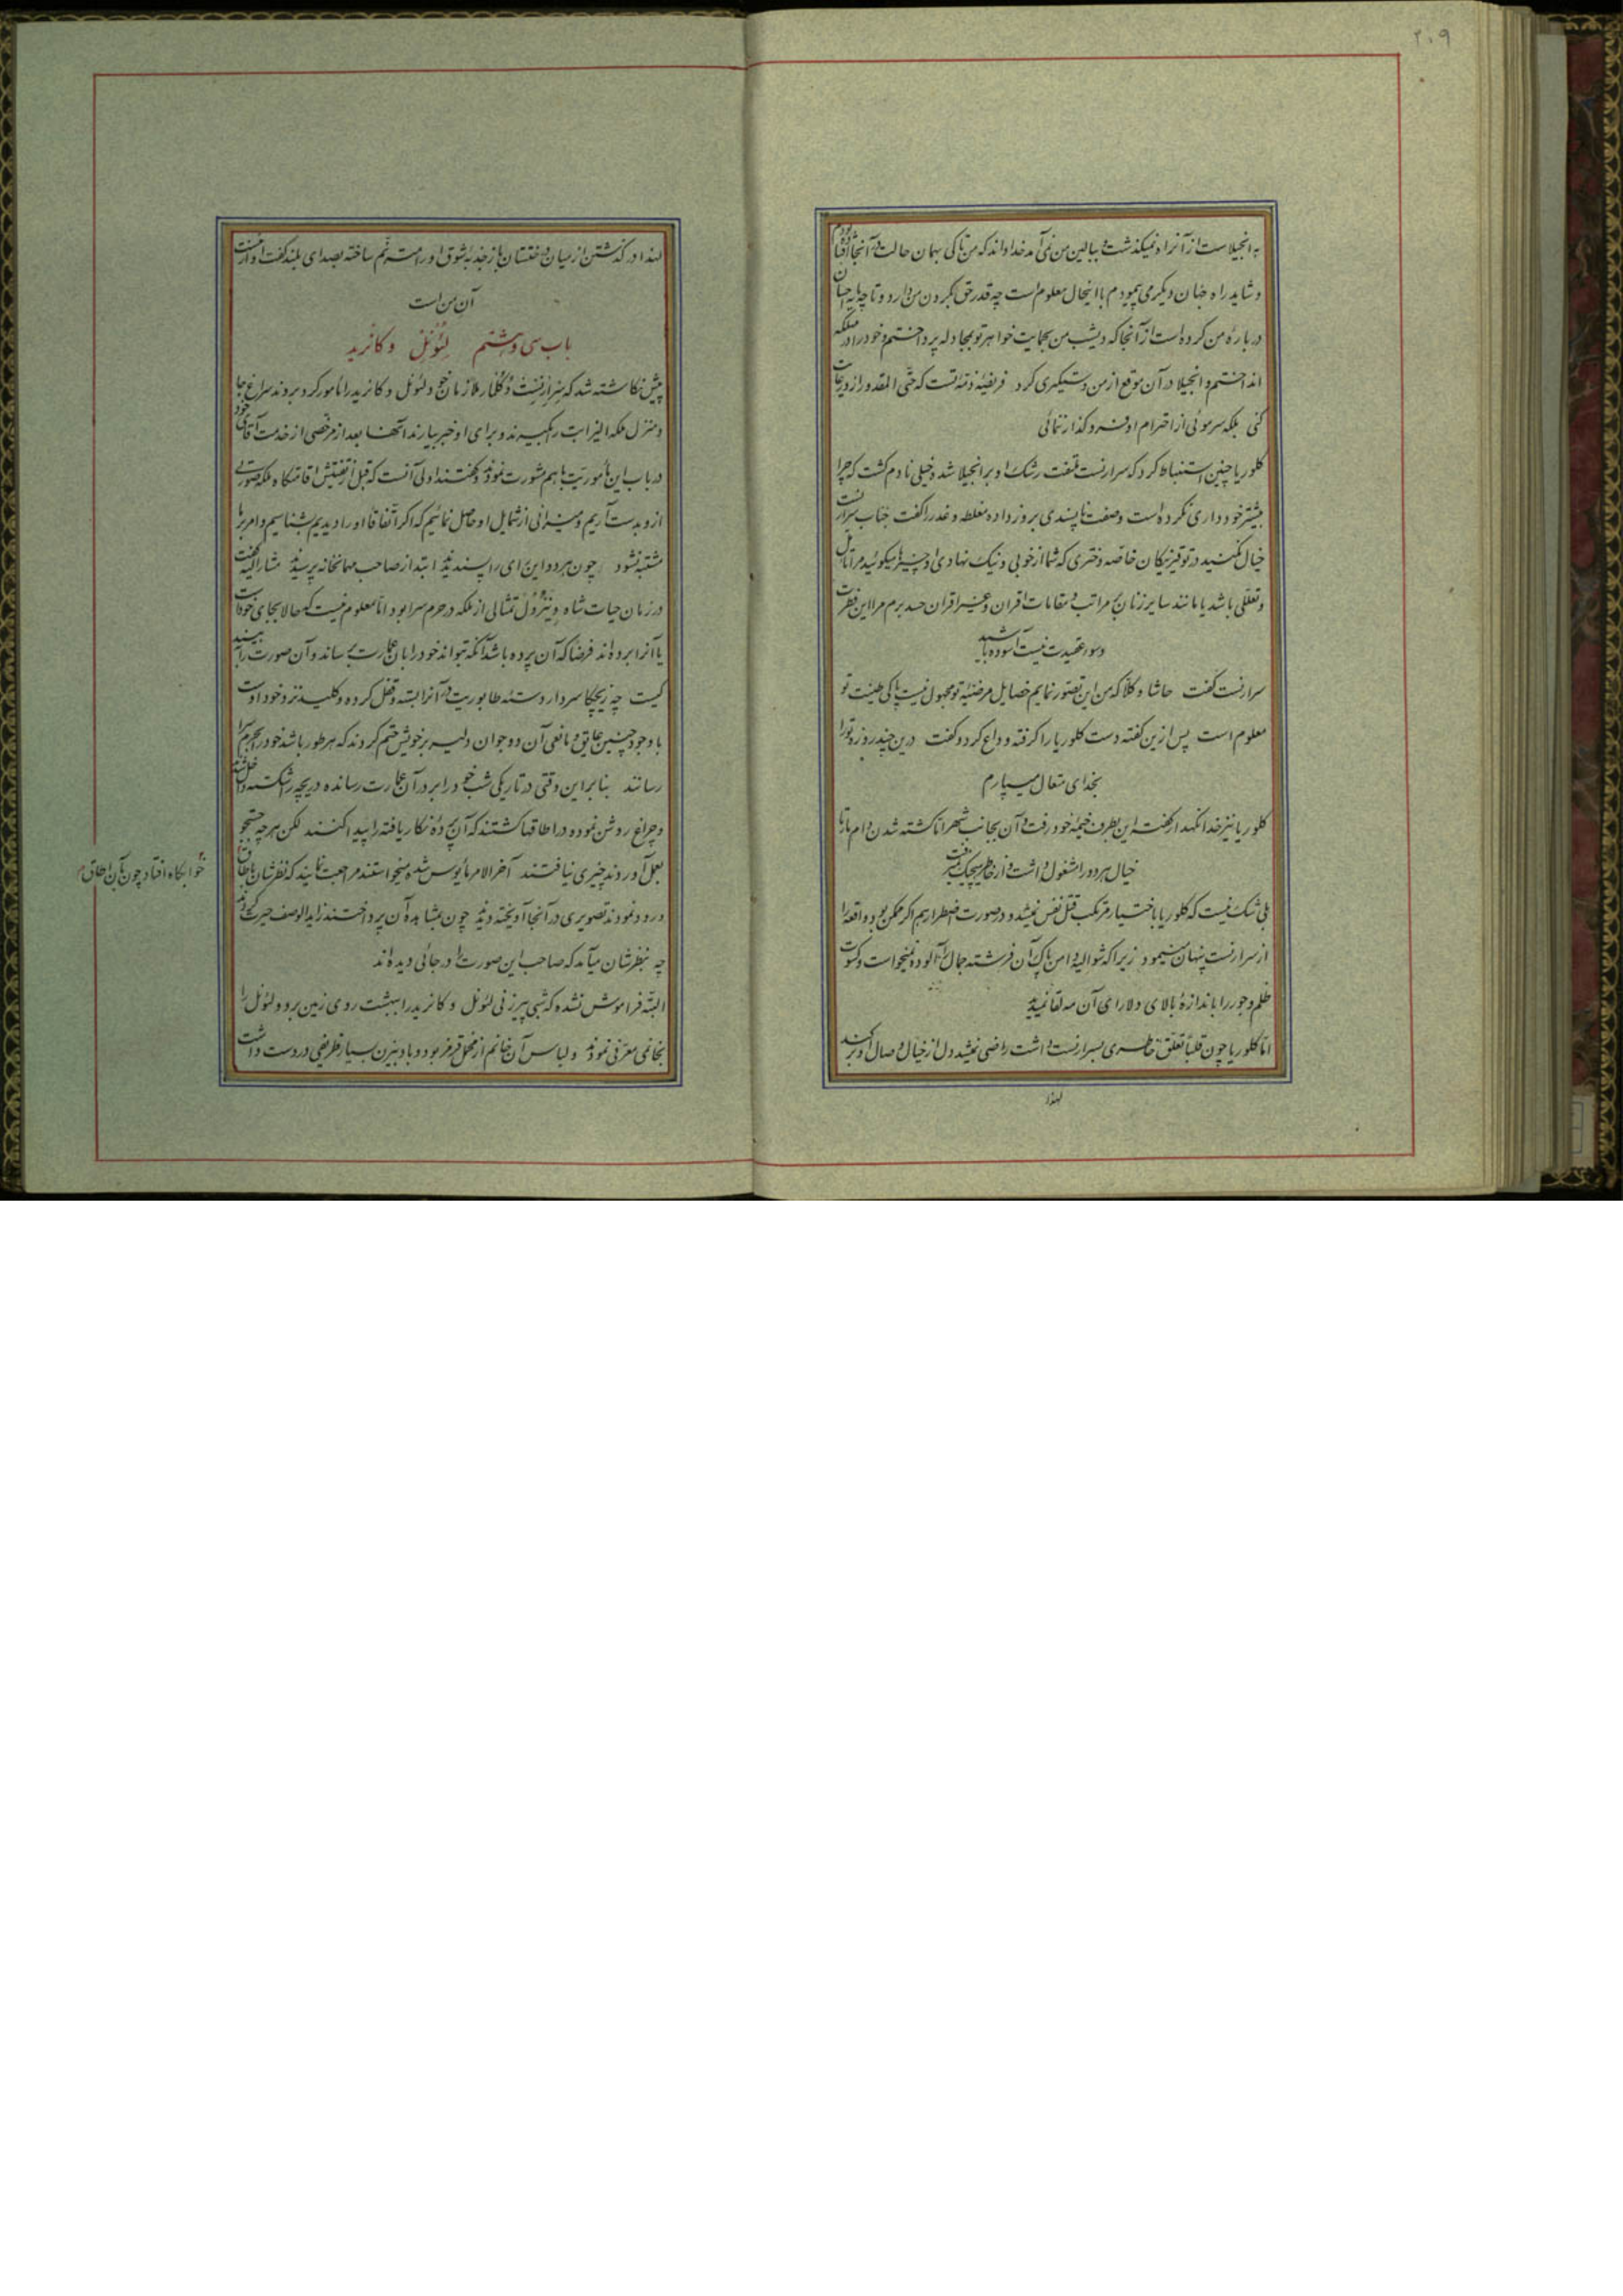 ۲۰۹
به انجیلاست از آنرا دنمیکذشت و ببالین من نمی آمد خدا داند که من تا کی بهمان حالت در آنجا افتاده بودم
و شاید راه جهان دیگر می پیمودم با اینحال معلوم است چه قدر حق بگردن من دارد و تا چه پایه احسان
در بارهٔ من کرده است از آنجا که دیشب من بحمایت خواهر تو بمجادله پرداختم و خود را در مهلکه
انداختم و انجیلا در آن موقع از من دستگیری کرد فریضهٔ ذمّهٔ تست که حتّی المقدور از و رعایت
کنی بلکه سرموئی از احترام او فروگذار ننمائی
کلوریا چنین استنباط کرد که سرارنست ملتفت رشک او بر انجیلا شد و خیلی نادم کشت که چرا
بیشتر خودداری نکرده است و صفت ناپسندی بروز داده مغلطه و عذر را گفت جناب سرارنست
خیال نکنید در توقیر نیکان خاصه دختری که شما از خوبی و نیک نهادی او چیزها میکوئید مرا تأمل
و تعللی باشد یا مانند سایر زنان بمراتب و مقامات اقران و غیر اقران حسد برم مرا این فطرت
و سوء عقیدت نیست آسوده باشید
سرارنست گفت حاشا و کلا که من این تصور نمایم خصایل مرضیّهٔ تو مجهول نیست پاکی طینت تو
معلوم است پس ازین گفته دست کلوریا را گرفته وداع کرد و گفت درین چند روزه تو را
بخدای متعال میسپارم
کلوریا نیز خدا نگهدار گفت این بطرف خیمهٔ خود رفت و آن بجانب شهر امّا کشته شدن دام مارتا
خیال هر دو را مشغول داشت و از خاطر هیچیک نمیرفت
بلی شک نیست که کلوریا باختیار مرتکب قتل نفس نمیشد و در صورت اضطرار هم اگر ممکن بود واقعه را
از سرارنست پنهان مینمود زیرا که شوالیه دامن پاک آن فرشته جمال را آلوده نمیخواست و کسوت
ظلم و جور را باندازهٔ بالای دلارای آن مه لقا نمیدید
امّا کلوریا چون قلباً تعلّق خاطری بسرارنست داشت راضی نمیشد دل از خیال وصال او برکند
لهذا
لهذا در گذشتن از میان درختستان باز جذبهٔ شوق او را مترنّم ساخته بصدای بلند گفت ارنست
آن من است
باب سی و هشتم لئونل و کانرید
پیش نکاشته شد که سرارنست دکلنار ملازمان خود لئونل و کانرید را مأمور کرد بروند سراغ جا
و منزل ملکه الیزابت را بگیرند و برای او خبر بیارند آنها بعد از مرخصی از خدمت آقای خود
در باب این مأموریّت با هم مشورت نمودند و گفتند اولی آنست که قبل از تفتیش اقامتگاه ملکه صورتی
ازو بدست آریم و میزانی از شمایل او حاصل نمائیم که اگر اتّفاقا او را دیدیم بشناسیم و امر بر ما
مشتبه نشود چون هر دو این رای را پسندیدند ابتدا از صاحب مهمانخانه پرسیدند مشارالیه گفت
در زمان حیات شاه ونزول تمثالی از ملکه در حرم سرا بود امّا معلوم نیست که حالا بجای خود باقیست
یا آنرا برده اند فرضا که آن پرده باشد آنکه بتواند خود را بان عمارت برساند و آن صورت را به بیند
کیست چه زیچکا سردار دستهٔ طابوریت در آنرا بسته و قفل کرده و کلید نزد خود اوست
با وجود چنین عایق و مانعی آن دو جوان دلیر بر خویش حتم کردند که هر طور باشد خود را بحرم سرا
رسانند بنابراین وقتی در تاریکی شب خود را بدر آن عمارت رسانده دریچه را شکسته داخل شدند
و چراغ روشن نموده در اطاقها گشتند که آن پردهٔ نگار یافته را پیدا کنند لکن هر چه جستجو
بعمل آوردند چیزی نیافتند آخر الامر مأیوس شده میخواستند مراجعت نمایند که نظرشان باطاق
خوابگاه افتاد چون بآن اطاق
ورود نمودند تصویری در آنجا آویخته دیدند چون بمشاهدهٔ آن پرداختند زاید الوصف حیرت کردند
چه بنظرشان میآمد که صاحب این صورت را در جائی دیده اند
البتّه فراموش نشده که شبی پیرزنی لئونل و کانرید را ببهشت روی زمین برد و لئونل را
بخانمی معرّفی نمود و لباس آن خانم از مخمل قرمز بود و بادبیزن بسیار ظریفی در دست داشت